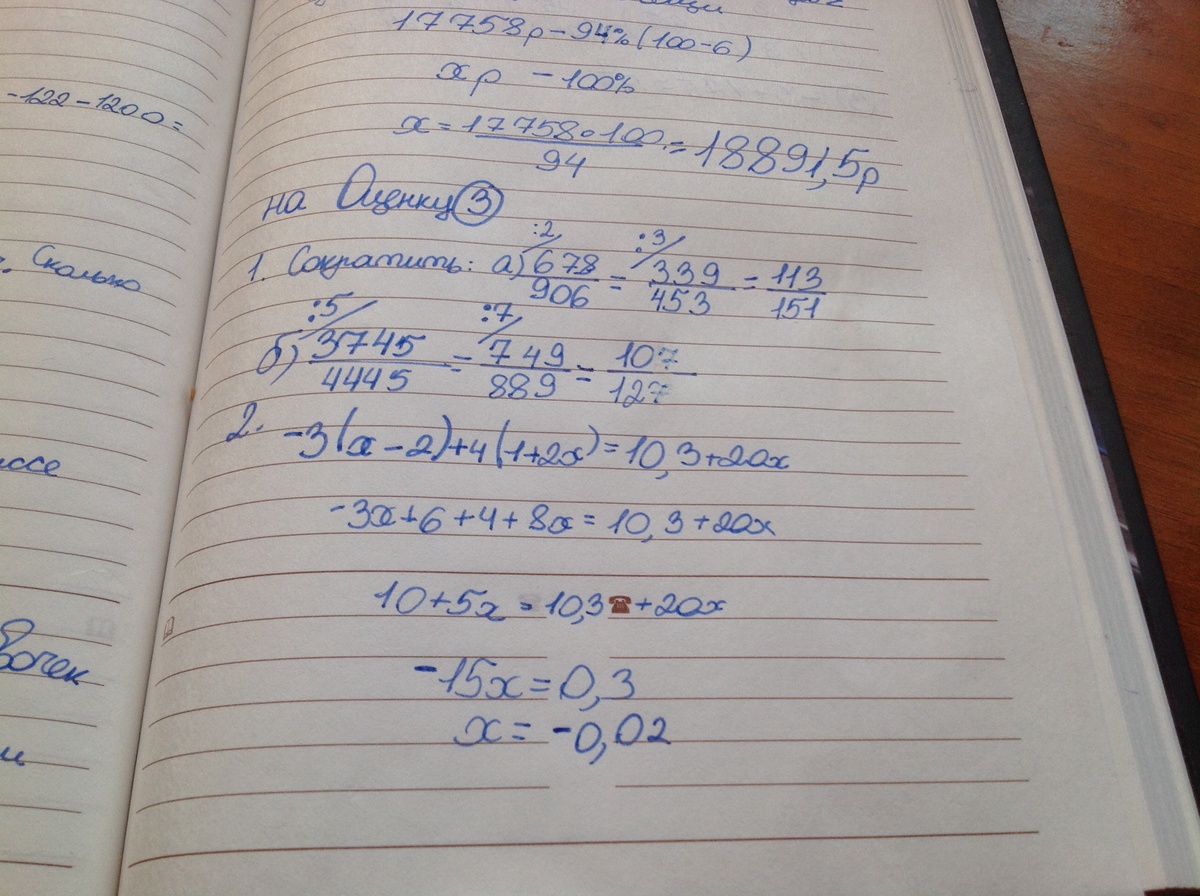 -122-1200=
Сколько
ссе
17758р-94%(100-6)
хр -100%
х=17758∘100/94=18891,5р
на Оценку ③
1. Сократить: а) 678/906 :2/ = 339/453 :3/ = 113/151
б) 3745/4445 :5/ = 749/889 :7/ = 107/127
2. -3(х-2)+4(1+2х)=10,3+20х
-3х+6+4+8х=10,3+20х
10+5х=10,3 +20х
-15х=0,3
х=-0,02